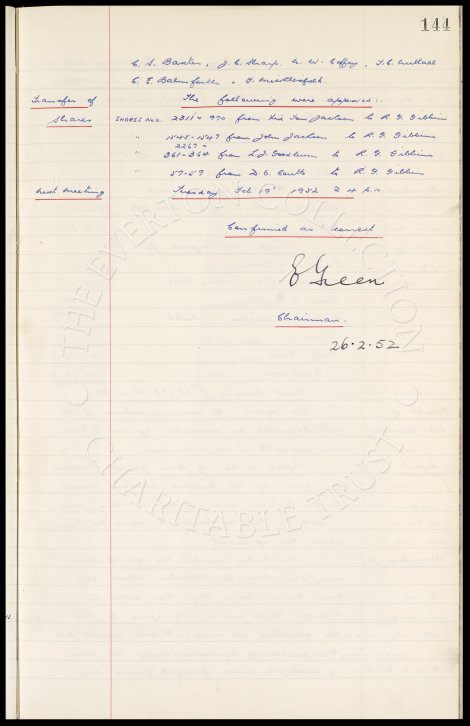 144
C. S. Baxter, J. C. Sharp. N. W. Coffey, T. C. Nuttall
C. E. Balmforth & F. Micklesfield.
Transfer of The following were approved:
Shares SHARES NOS. 2311 & 970 from Jackson to R. G. Gibbins
" 1545-1547 from John Jackson to R. G. Gibbins
2267 &
" 361-364 from to R. G. Gibbins
" 57-59 from D. C. to R. G. Gibbins
Next meeting Tuesday Feb 19th 1952 @ 4 p.m.
Confirmed as correct
E Green
Chairman.
26.2.52
THE EVERTON COLLECTION
CHARITABLE TRUST